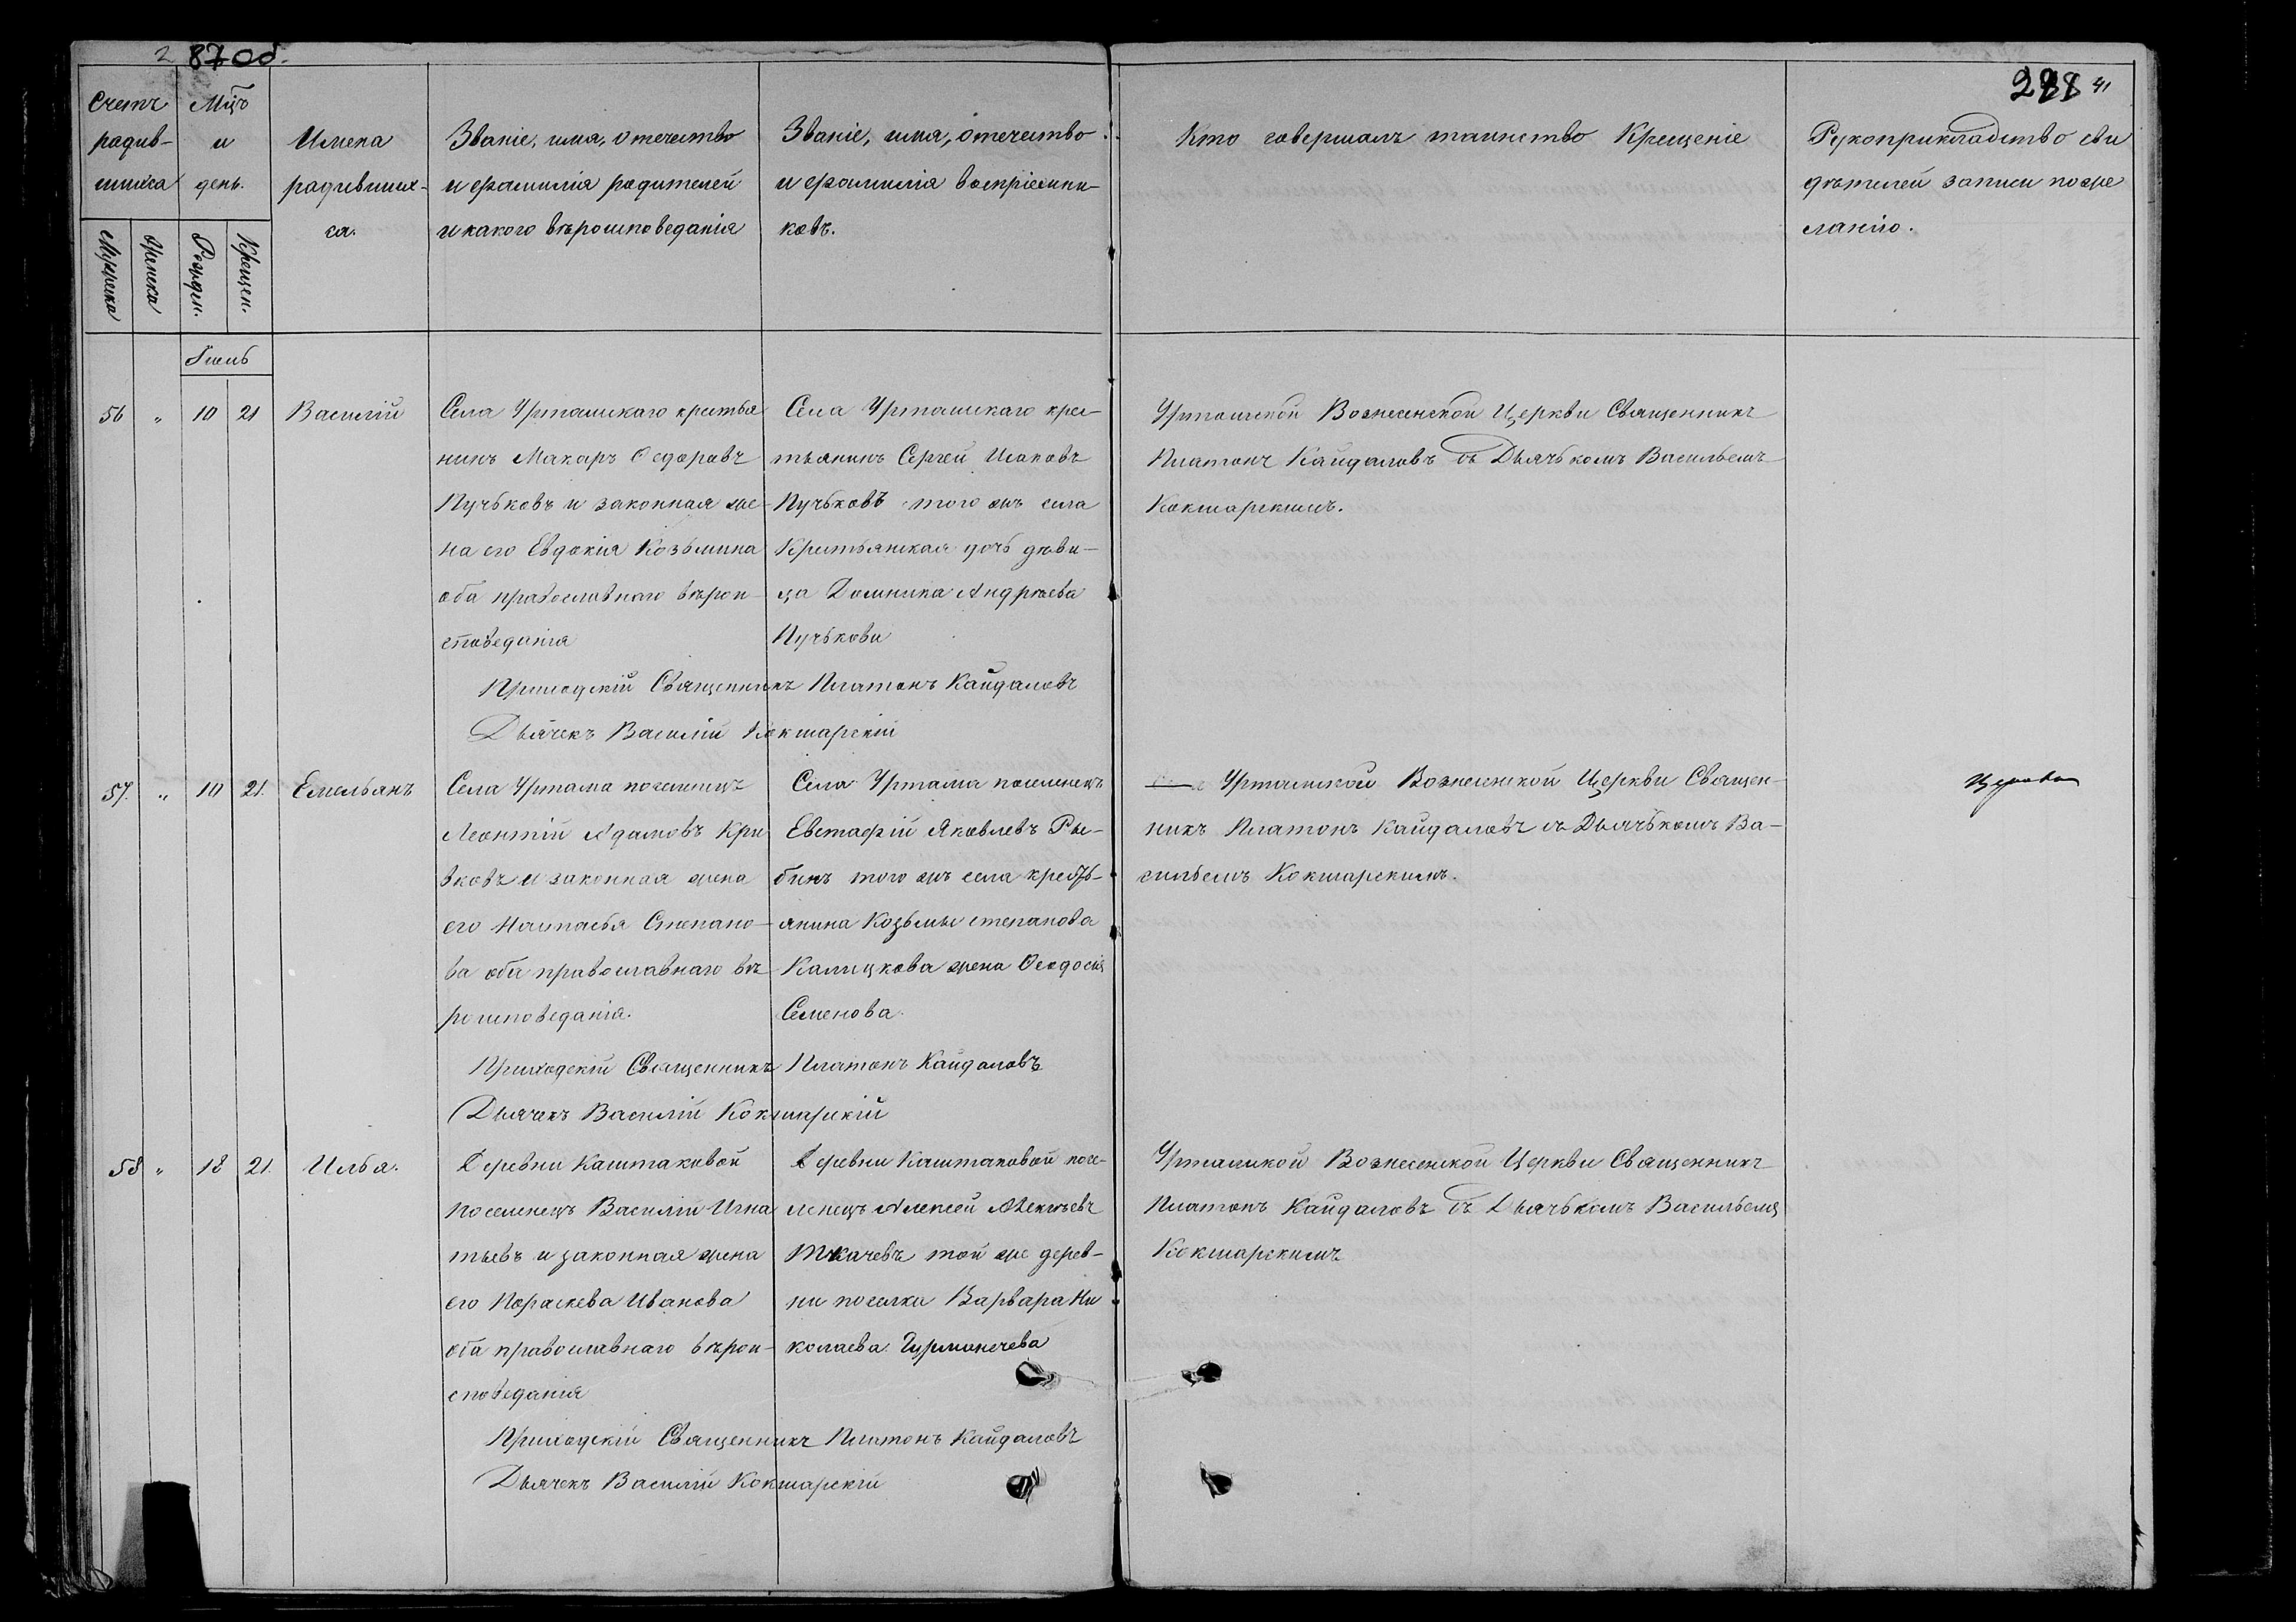 287 об.
288 41
Счетъ
родив-
шихся
Мужеска
Женска
Мцъ
и
день.
Рожден.
Крещен.
Имена
родивших-
ся.
Званіе, имя, отечество
и фамилія родителей
и какого вѣроисповеданія
Званіе, имя, отечество
и фамилія воспріемни-
ковъ.
Кто совершалъ таинство Крещеніе
Рукоприкладство сви
дѣтелей записи по же
ланію.
Іюль
56 " 10 21 Василій
Села Уртамскаго крестья
нинъ Макаръ Ѳедоровъ
Пучьковъ и законная же-
на его Евдокія Козьмина
оба православнаго вѣрои-
споведанія
Села Уртамскаго крес-
тьянинъ Сергей Исаковъ
Пучьковъ того жъ села
Крестьянская дочь дѣви-
ца Домника Андрѣева
Пучькова
Уртамской Вознесенской Церкви Священникъ
Платонъ Кайдаловъ съ Дьячькомъ Васильемъ
Кокшарскимъ.
Приходскій Священникъ Платонъ Кайдаловъ
Дьячекъ Василій Кокшарскій
57. " 10 21. Емельянъ
Села Уртама поселенецъ
Леонтій Адамовъ Кри
вковъ и законная жена
его Настасья Степано-
ва оба православнаго вѣ
роисповеданія.
Села Уртама поселенецъ
Евстафій Яковлевъ Ры-
бинъ того жъ села кресть-
янина Козьмы степанова
Калицкова жена Ѳеодосія
Семенова.
Уртамской Вознесенской Церкви Священ-
никъ Платонъ Кайдаловъ съ Дьячькомъ Ва-
сильемъ Кокшарскимъ.
Приходскій Священникъ Платонъ Кайдаловъ
Дьячекъ Василій Кокшарскій
58 " 18 21. Илья.
Деревни Каштаковой
поселенецъ Василій Игна
тьевъ и законная жена
его Пораскева Иванова
оба православнаго вѣрои-
споведанія
Деревни Каштаковой посе-
ленецъ Алексей Алексѣевъ
Ткачевъ той же дерев-
ни поселка Варвара Ни
колаева
Уртамской Вознесенской Церкви Священникъ
Платонъ Кайдаловъ съ Дьячькомъ Васильемъ
Кокшарскимъ
Приходскій Священникъ Платонъ Кайдаловъ
Дьячекъ Василій Кокшарскій